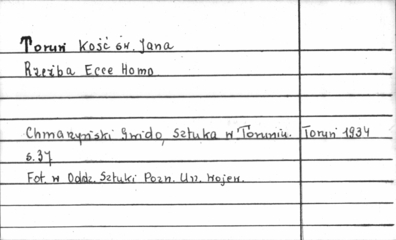 Toruń Kość św. Jana
Rzeźba Ecce Homo
Chmarzyński Gwido, Sztuka w Toruniu. Toruń 1934
s. 37
Fot. w Oddz. Sztuki Pozn. Urz. Wojew.